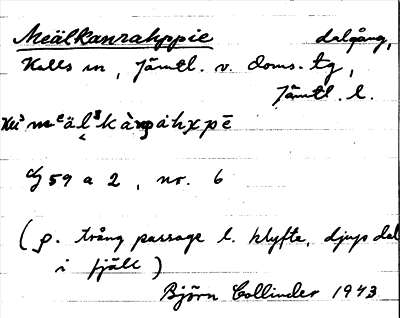 Meälkanrahppie dalgång,
Kalls sn, Jämtl. v. doms. tg,
Jämtl. l.
59 a 2, nr. 6
(ρ. trång passage l. klyfta, djup dal
i fjäll)
Björn Collinder 1943